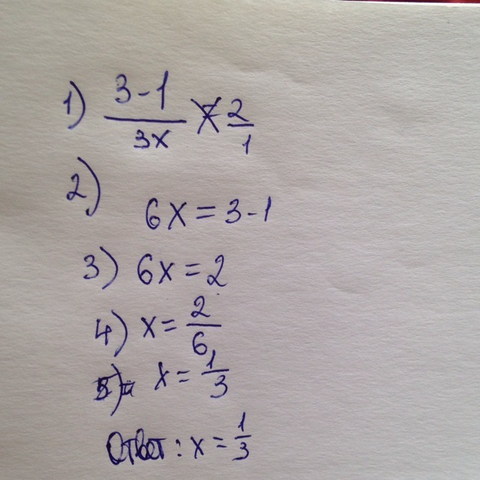 1) 3-1/3x = 2/1
2) 6x = 3-1
3) 6x = 2
4) x = 2/6
5) x = 1/3
Ответ: x = 1/3